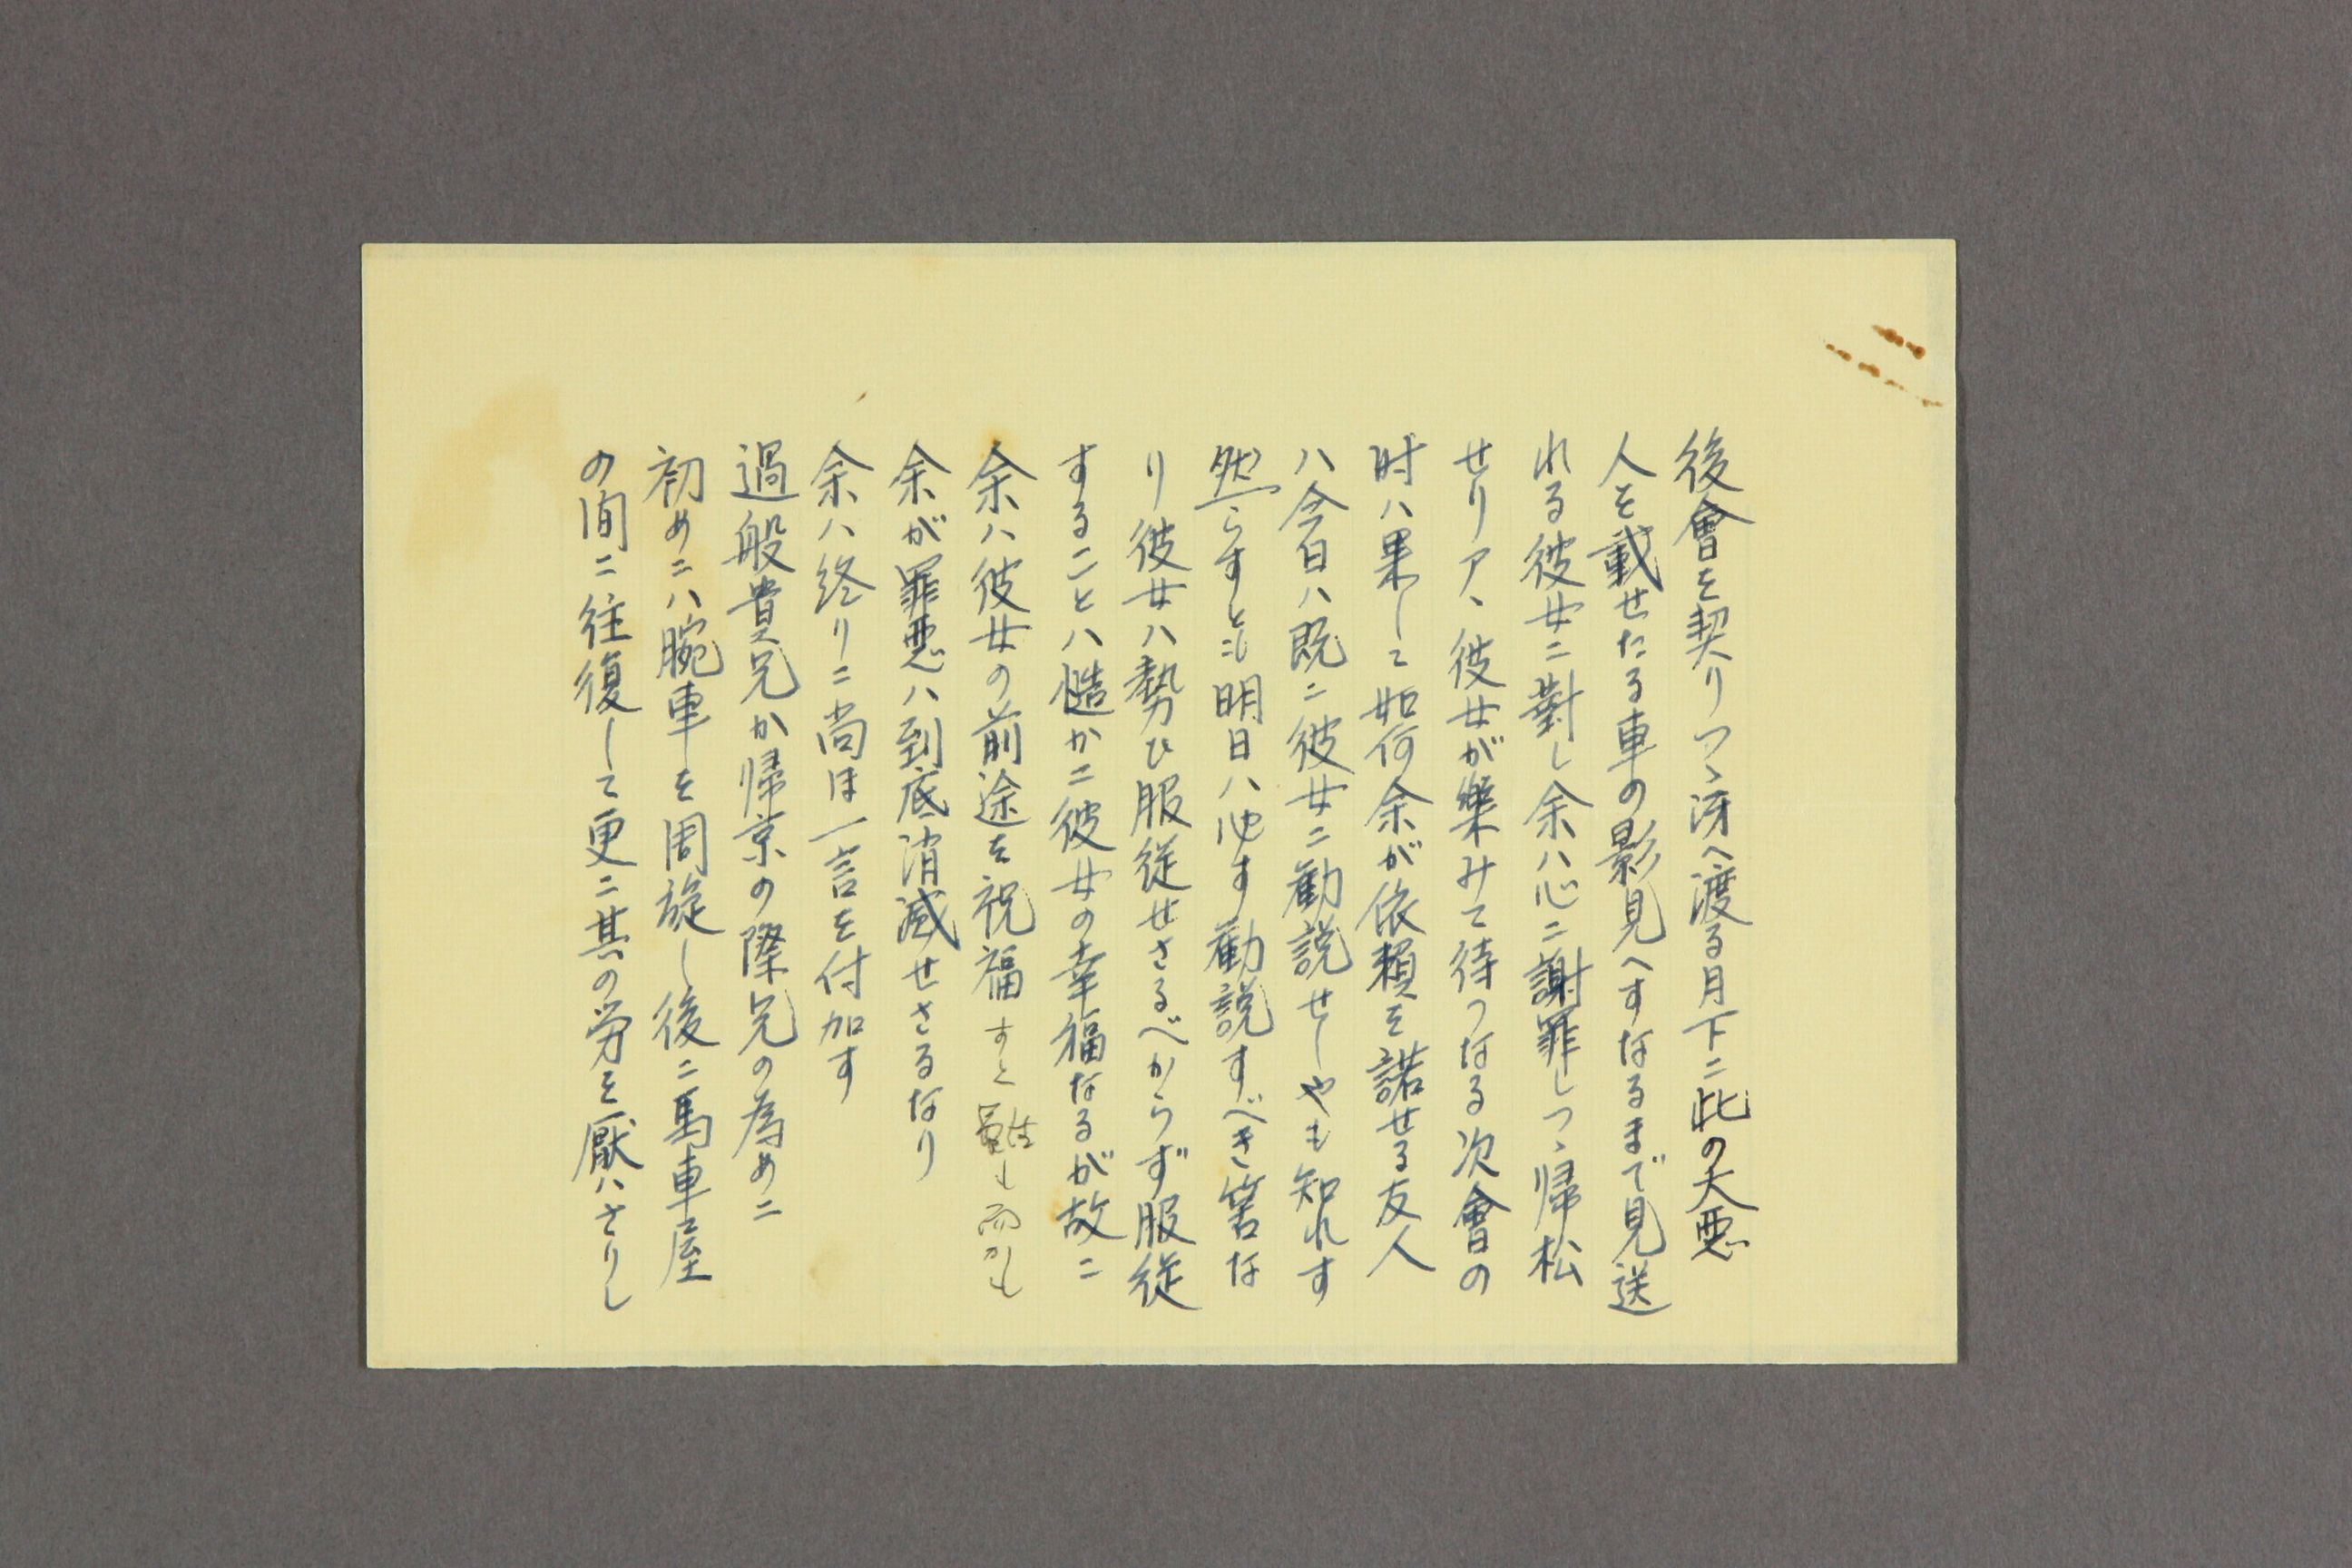 後會を契りつゝ冴へ渡る月下ニ此の大悪
人を載せたる車の影見へすなるまで見送
れる彼女ニ對し余ハ心ニ謝罪しつゝ帰松
せりア、彼女が樂みて待つなる次會の
时ハ果して如何余が依頼を諾せる友人
ハ今日ハ既ニ彼女ニ勧説せしやも知れす
然らすとも明日ハ必す勧説すべき筈な
り彼女ハ勢ひ服従せさるべからず服従
することハ慥かニ彼女の幸福なるが故ニ
余ハ彼女の前途を祝福すと雖も而かも
余が罪悪ハ到底消滅せさるなり
余ハ終りニ尚ほ一言を付加す
過般貴兄か帰京の際兄の為めニ
初めニハ腕車を周旋し後ニ馬車屋
の间ニ往復して更ニ其の労を厭ハさりし